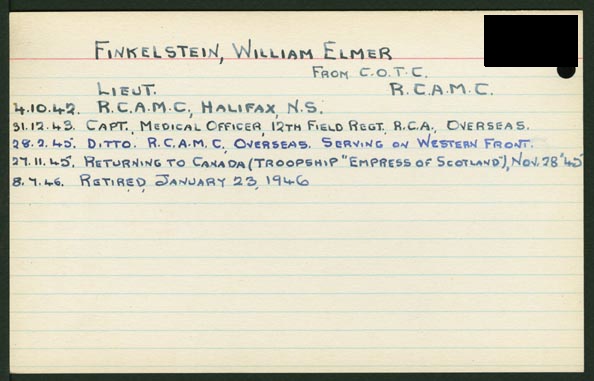 FINKELSTEIN, WILLIAM ELMER
FROM C.O.T.C.
LIEUT. R.C.A.M.C.
4.10.42. R.C.A.M.C., HALIFAX, N.S.
31.12.43. CAPT., MEDICAL OFFICER, 12TH FIELD REGT., R.C.A., OVERSEAS.
28.2.45. DITTO. R.C.A.M.C., OVERSEAS. SERVING ON WESTERN FRONT.
27.11.45. RETURNING TO CANADA (TROOPSHIP "EMPRESS OF SCOTLAND"), NOV. 28 '45
8.7.46. RETIRED, JANUARY 23, 1946